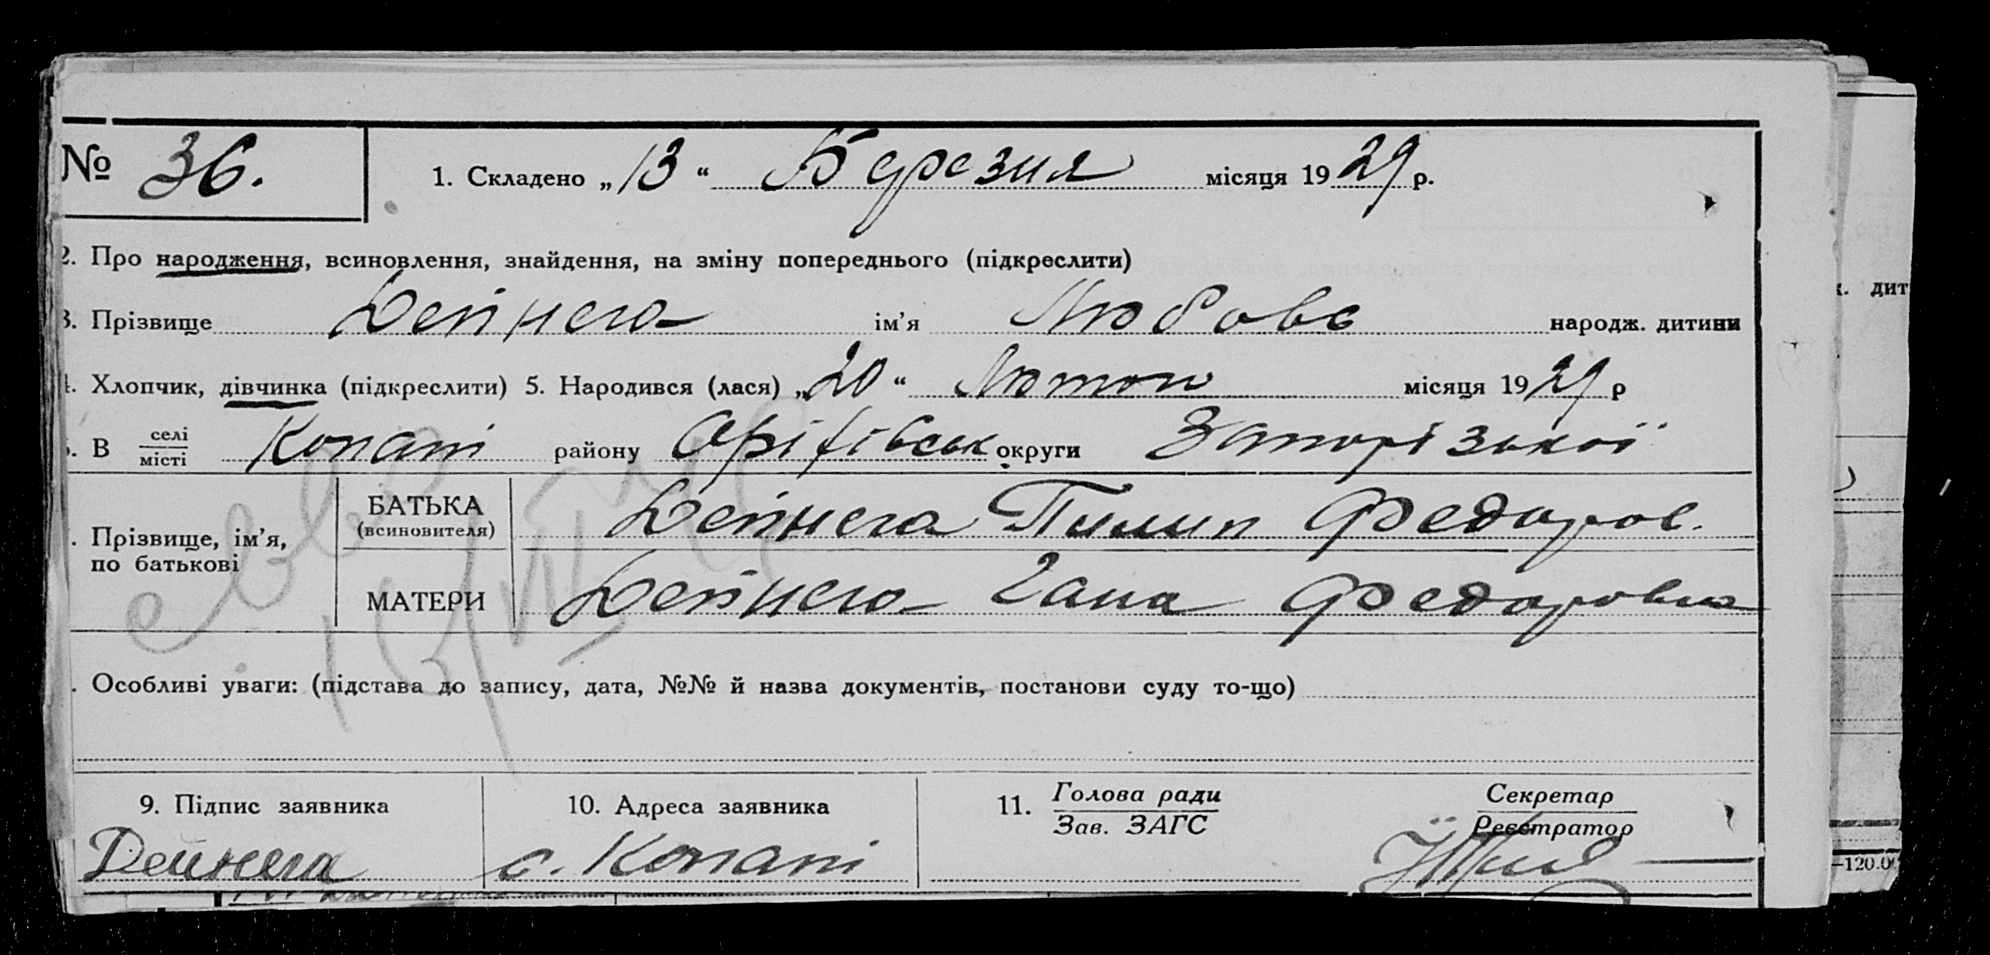 № 36. 1. Складено „13“ Березня місяця 1929 р.
2. Про народження, всиновлення, знайдення, на зміну попереднього (підкреслити)
3. Прізвище Дейнега ім’я Любовь народж. дитини
4. Хлопчик, дівчинка (підкреслити) 5. Народився (лася) „20“ Лютого місяця 1929 р
В селі
місті Копані району Оріхівськ округи Запорізької
Прізвище, ім’я,
по батькові
БАТЬКА
(всиновителя) Дейнега Пилип Федоров.
МАТЕРИ Дейнега Гана Федоровна
Особливі уваги: (підстава до запису, дата, №№ й назва документів, постанови суду то-що)
9. Підпис заявника
Дейнега
10. Адреса заявника
с. Копані
11. Голова ради
Зав. ЗАГС
Секретар
Реєстратор
дит
—120.0